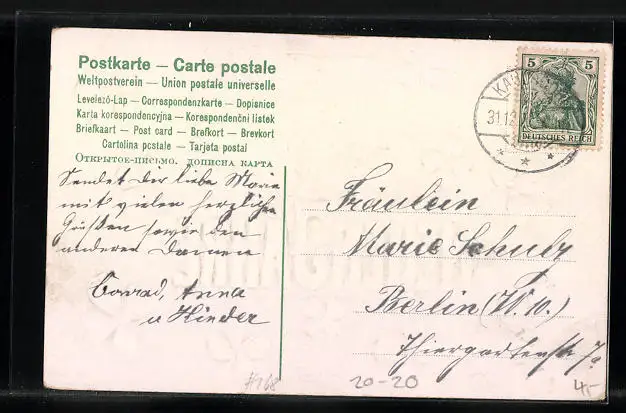 Postkarte — Carte postale
Weltpostverein — Union postale universelle
Levelező-Lap — Correspondenzkarte — Dopisnice
Karta korespondencyjna — Korespondenční listek
Briefkaart — Post card — Brefkort — Brevkort
Cartolina postale — Tarjeta postal
Открытое-письмо. дописна карта
5 5
DEUTSCHES REICH
31.12
Sendet dir liebe Marie
mit vielen herzlichen
Grüßen sowie den
anderen Damen
Conrad, Anna
u Kinder
Fräulein
Marie Schulz
Berlin (W. 10.)
Thiergartenstr 7a
20-20
4,-